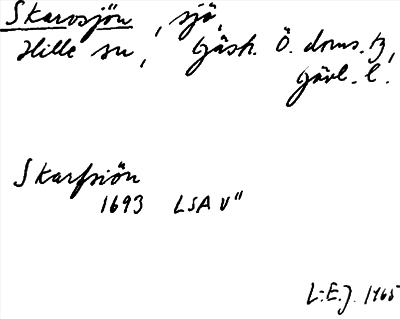 Skarvsjön, sjö,
Hille sn, Gästr. Ö. doms. tg,
Gävl. l.
Skarfsiön
1693 LSA V"
L-E.J. 1965